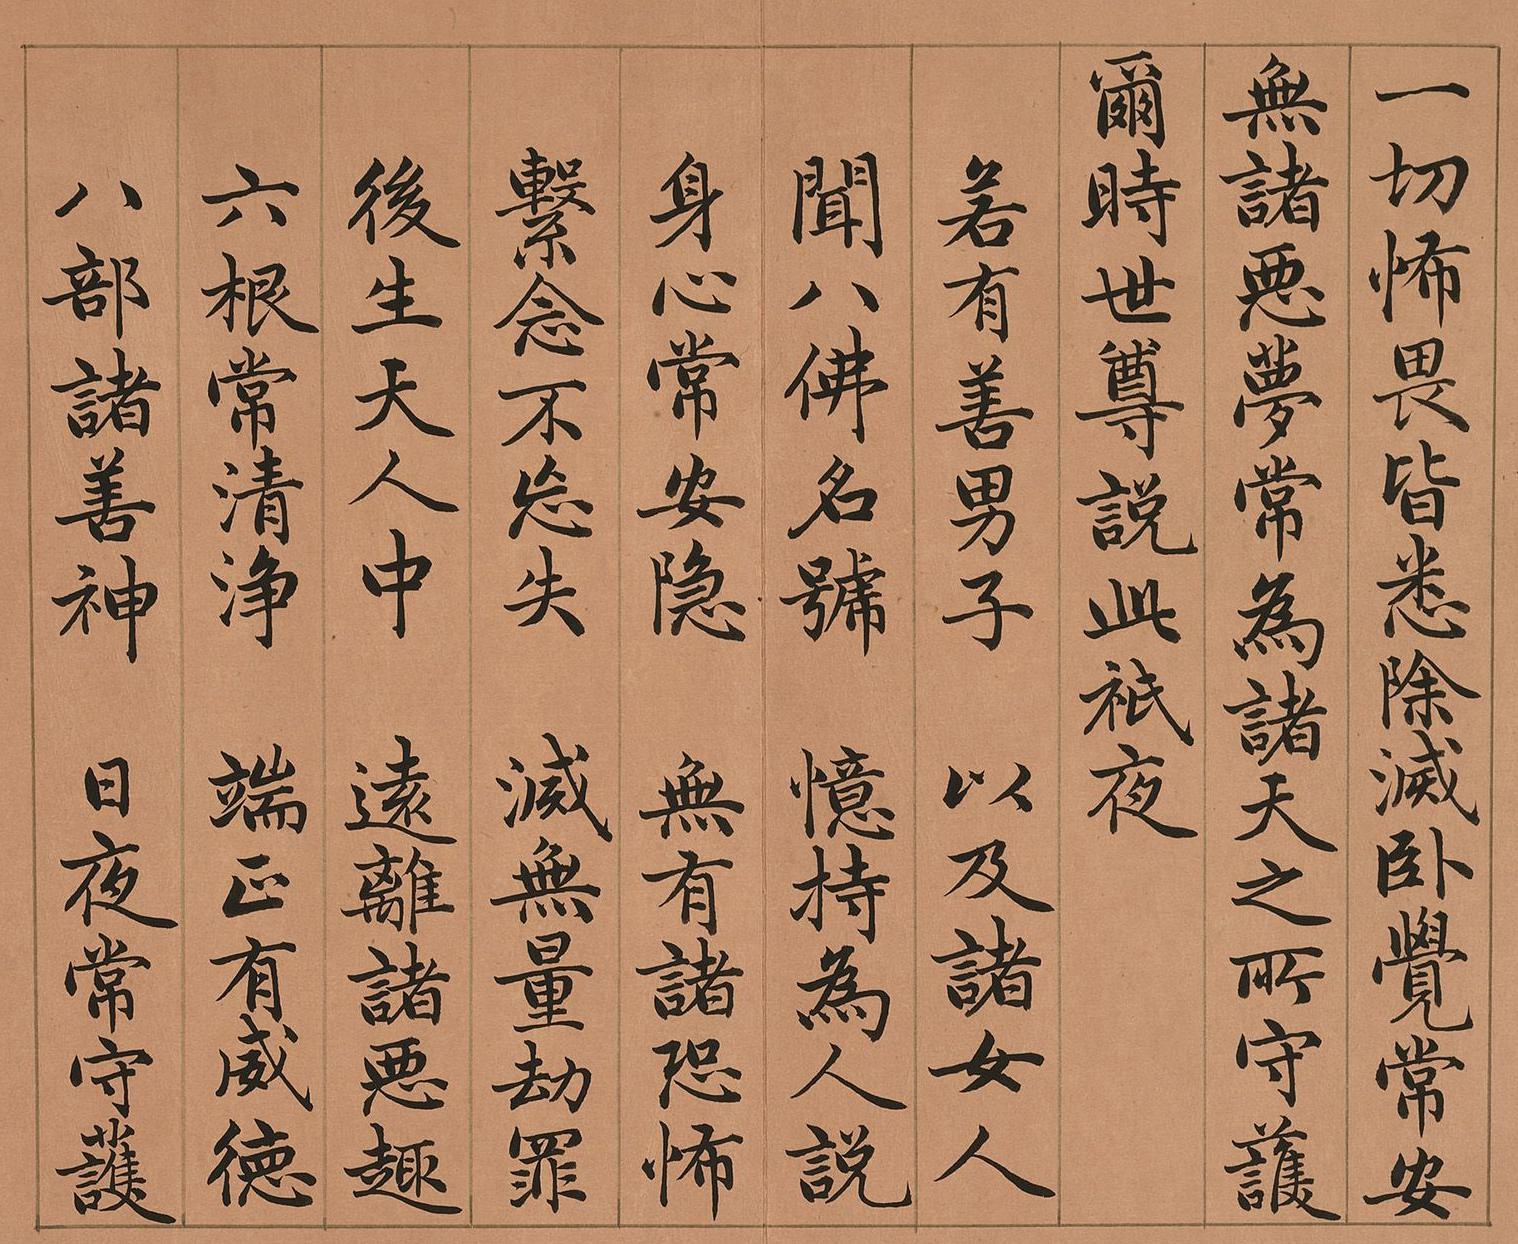 一切怖畏皆悉除滅卧覺常安
無諸悪夢常為諸天之所守護
爾時世尊説此祇夜
若有善男子　以及諸女人
聞八佛名號　憶持為人説
身心常安隐　無有諸恐怖
繫念不忘失　滅無量劫罪
後生天人中　遠離諸悪趣
六根常清浄　端正有威徳
八部諸善神　日夜常守護